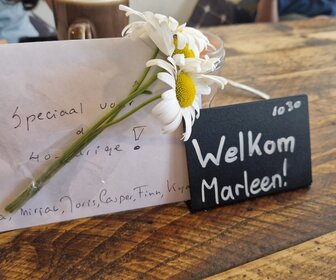 Speciaal voor
d
40-jarige!
Mirjam, Joris, Casper, Finn,
1030
Welkom
Marleen!